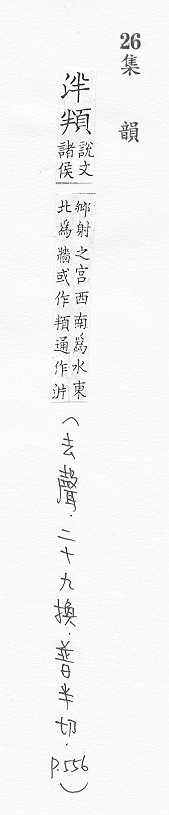 26 集韻
泮頖
說文
諸侯
鄉射之宮西南爲水東
北爲牆或作頖通作沜
(去聲．二十九換．普半切．P.556)